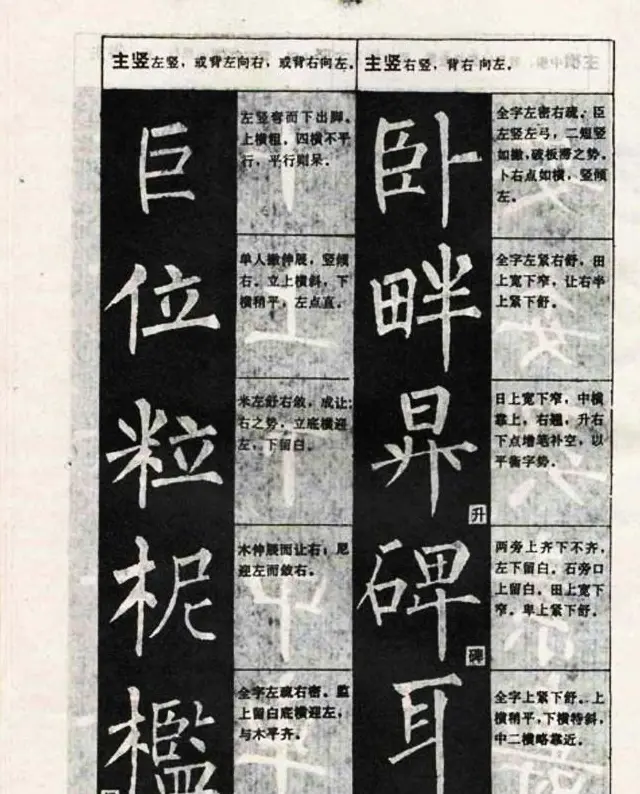 主竖左竖，或背左向右，或背右向左。
主竖右竖，背右向左。
巨
左竖弯而下出脚。
上横粗。四横不平
行，平行则呆。
位
单人撇伸展，竖倾
右。立上横斜，下
横稍平，左点直。
粒
米左舒右敛，成让
右之势，立底横迎
左，下留白。
柅
木伸展而让右；尼
迎左而敛右。
槛
全字左疏右密。监
上留白底横迎左，
与木平齐。
卧
全字左密右疏。臣
左竖左弓，二短竖
如撇，破板滞之势。
卜右点如横，竖倾
左。
畔
全字左紧右舒，田
上宽下窄，让右半
上紧下舒。
昇
升
日上宽下窄，中横
靠上，右翘，升右
下点增笔补空，以
平衡字势。
碑
碑
两旁上齐下不齐，
左下留白。石旁口
上留白。田上宽下
窄。卑上紧下舒。
耳
全字上紧下舒。上
横稍平，下横特斜，
中二横略靠近。